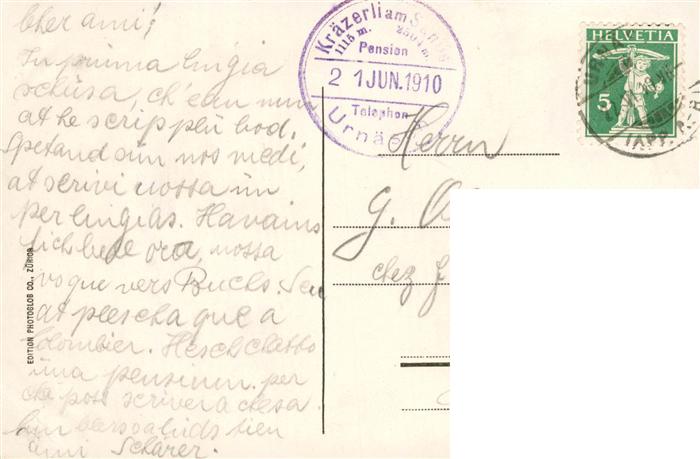 Cher ami!
In prüma lingia
schüsa, ch'eau nun
at he scrit plü bod.
Spetand sün nos medi,
at scrivi uossa ün
per lingias. Havains
fich bell'ora, uossa
vogue vers Buchs. Scu
at plescha que a
Colombier. Hesch chatto
üna pensiun. per
che poss scriver a chesa
bun
ami Schärer.
EDITION PHOTOGLOB CO., ZÜRICH
Kräzerli am Säntis
1115 m. 2504 m
Pension
21 JUN. 1910
Telephon
Urnäs
HELVETIA
5
Herrn
G.
chez J